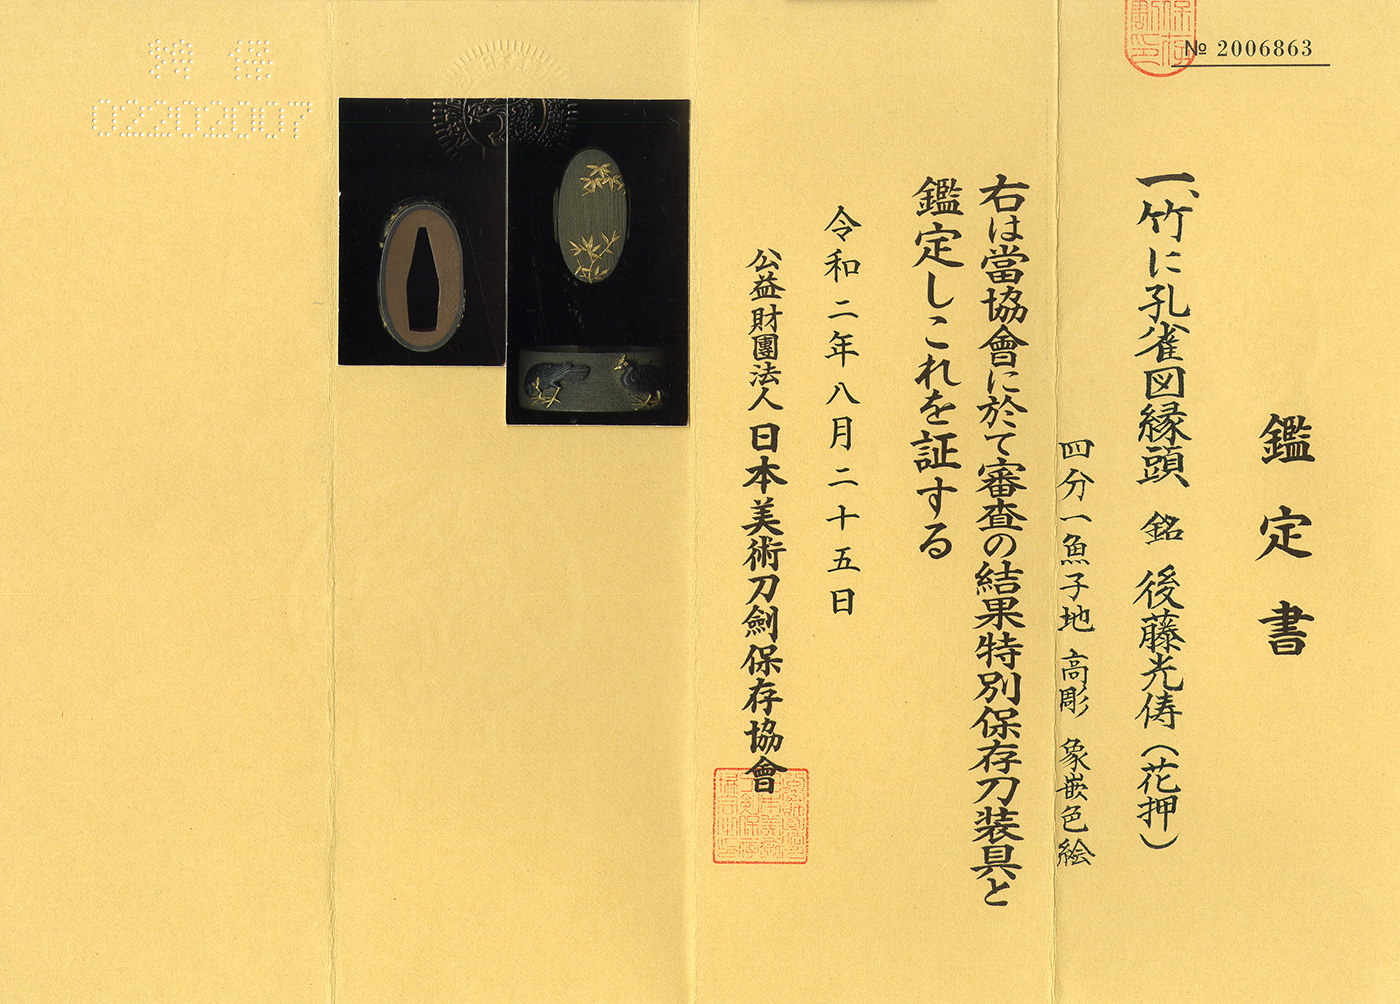 № 2006863
鑑定書
一、竹に孔雀図縁頭 銘 後藤光侍(花押)
四分一魚子地 高彫 象嵌色絵
右は當協會に於て審査の結果特別保存刀装具と
鑑定しこれを証する
令和二年八月二十五日
公益財團法人日本美術刀劍保存協會
特保
02202007